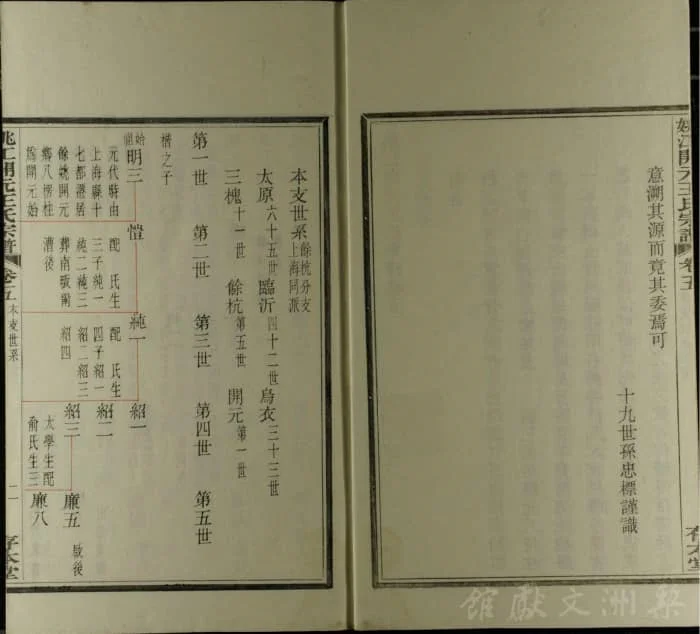 姚江開元王氏宗譜 卷五
意溯其源而竟其委焉可
十九世孫忠標謹識
存本堂
本支世系 餘杭分支 上海同派
太原 六十五世 臨沂 四十二世 烏衣 三十三世
三槐 十一世 餘杭 第五世 開元 第一世
第一世 第二世 第三世 第四世 第五世
楷之子
始開 明三 愷 純一 紹一
元代時由 配 氏生 配 氏生 紹二
上海縣十 三子純一 四子紹一
七都遷居 純二純三 紹二紹三 紹三 廉五 啟後
餘姚開元 葬南 紹四 太學生配
鄉八楞柱 漕後 俞氏生三 廉八
為開元始
姚江開元王氏宗譜 卷五 本支世系 二 存本堂
梨洲文獻館